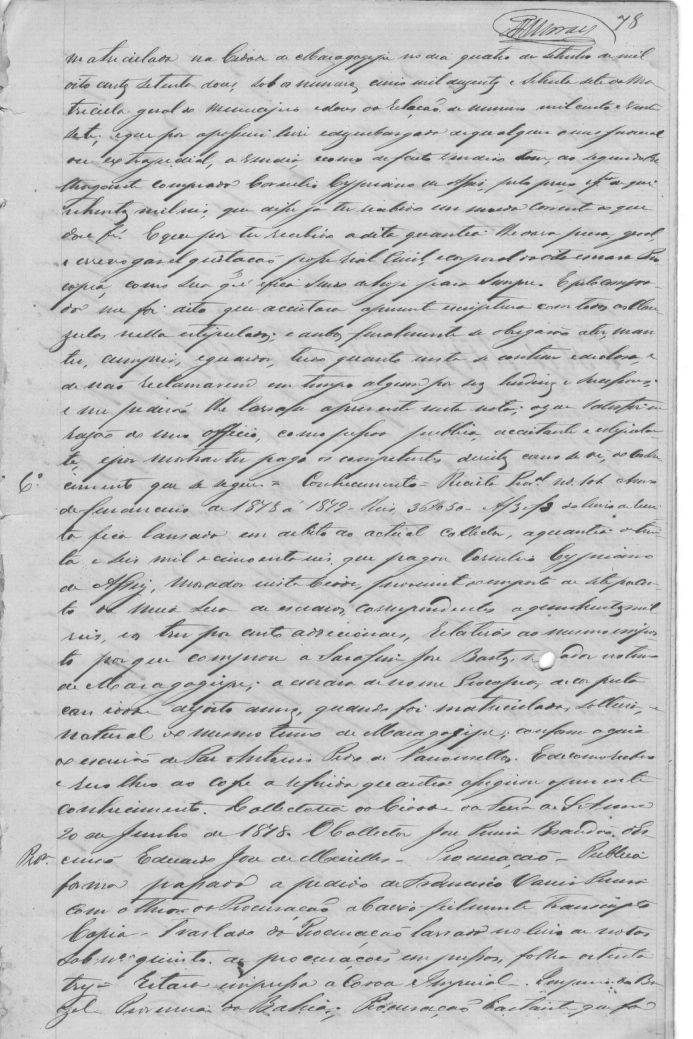 78
matriculada na Cidade de Maragogipe no dia quatro de Setembro de mil
oito centos setenta dous, sob os numeros cinco mil duzentos e setenta sete da Ma-
tricula geral do municipio e dous da relação de numero mil cento e vinte
sete; e que por a possuir livre e desembargada de qualquer onus judicial
ou extrajudicial, a vendia, como de facto vendida tem, ao segundo
outhorgante comprador Cornelio Cypriano de Assis, pelo preço de qui-
nhentos mil reis, que disse já ter recebido em moeda corrente do que
dou fé. E que por ter recebido a dita quantia lhe dava plena, geral,
e irrevogavel quitação
copia, como sua que fica sendo de hoje para sempre. E pelo compra-
dor me foi dito que acceitava a presente escriptura com todas as clau-
zulas nella estipuladas; e ambos finalmente se obrigarão a ter, man-
ter, cumprir, e guardar, tudo quanto nesta se contem e declara, e
de não reclamarem em tempo algum por si, herdeiros e successores
e me pedirão lhe lavrasse a presente nesta nota, o que satisfiz em
razão do meu officio, como pessoa publica, acceitante e estipulan-
te, e por mostrar ter pago os competentes direitos como se vê, do conhe-
6º cimento que se segue = Conhecimento = Receita Prov.al nº 101 Anno
de financeiro de 1878 á 1879 - Reis, 36$050 - A f 3 do livro de recei-
ta fica lançado em debito ao actual collector, a quantia de trin-
ta e seis mil e cincoenta reis, que pagou Cornelio Cypriano
de Assis, morador nesta Cidade, proveniente do imposto de sete por cen-
to de meia siza de escravos, correspondentes a quinhentos mil
reis, e os tres por cento addicionais, relativos ao mesmo impos-
to por que comprou a Serafim José Bastos, morador no termo
de Maragogipe; a escrava de nome Procopia, de cor preta
com idade de oito annos, quando foi matriculada, solteira, e
natural do mesmo termo de Maragogipe; conforme a guia
do escrivão de Paz Antonio Pires de Vasconcellos. E de como recebeu
e recolheu ao cofre a referida quantia assignou o presente
conhecimento. Collectoria da Cidade da Feira de Sant'Anna
20 de Junho de 1878. O Collector José Brandão. O Es-
Pro. crivão Eduardo José de Meirelles - Procuração - Publica
forma passada a pedido de Francisco
com o theor da Procuração abaixo fielmente transcripta
Copia - Traslado da Procuração lavrada no livro de notas
sob nº quinto de procurações impressas, folha oitenta
tres = Estava impressa a Coroa Imperial. Imperio do Bra-
zil Provincia da Bahia. Procuração bastante que faz